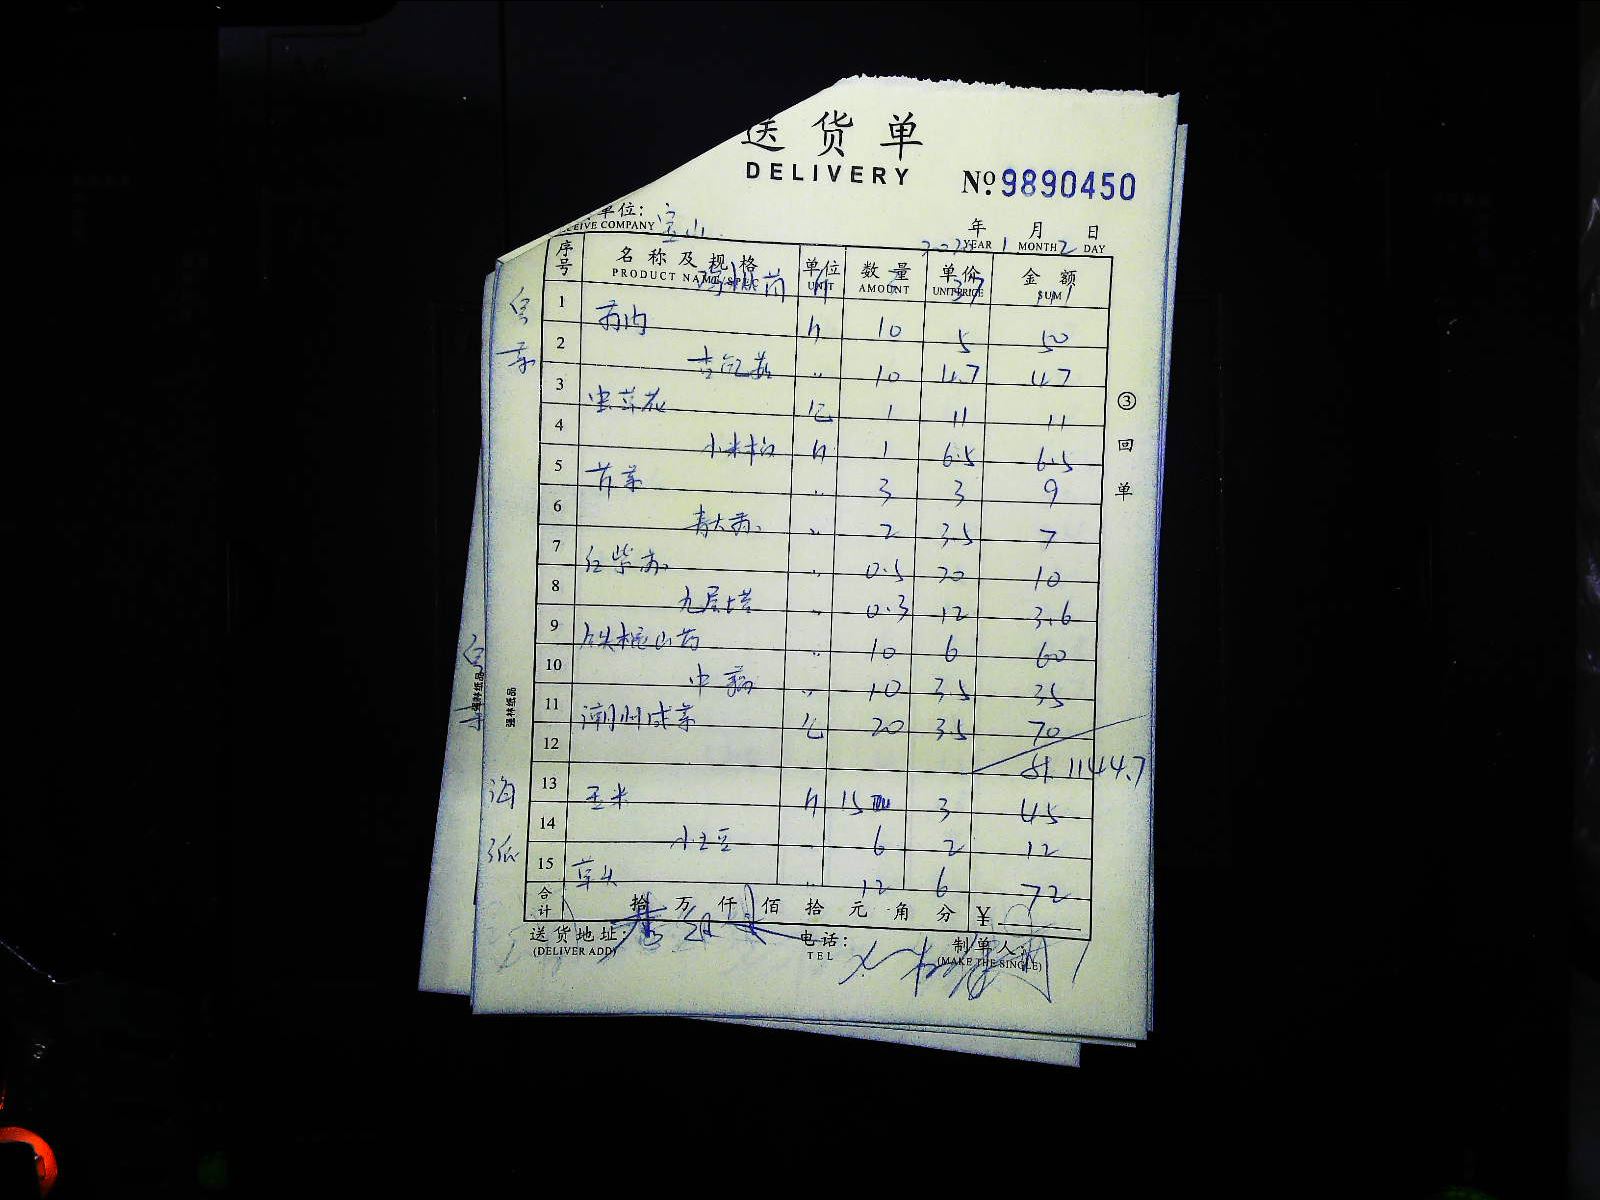 送货单
DELIVERY
No. 9890450
单位： 宝山
CEIVE COMPANY
年 月 日
YEAR 1 MONTH 2 DAY
序号 名称及规格 单位 数量 单价 金额
PRODUCT NAME/SPEC UNIT AMOUNT UNITPRICE SUM
1 10 5 50
2 10 4.7 47
3 虫草花 1 11 11
4 小米椒 1 6.5 6.5
5 芹菜 3 3 9
6 2 3.5 7
7 红紫苏 0.5 20 10
8 九层塔 0.3 12 3.6
9 铁棍山药 10 6 60
10 中藕 10 3.5 35
11 潮州咸菜 20 3.5 70
12
1144.7
13 玉米 15 3 45
14 小土豆 6 2 12
15 草头 12 6 72
合计 拾 万 仟 佰 拾 元 角 分 ¥
送货地址： 电话： 制单人：
(DELIVER ADD) TEL (MAKE THE SINGLE)
③回单
强林纸品
强林纸品